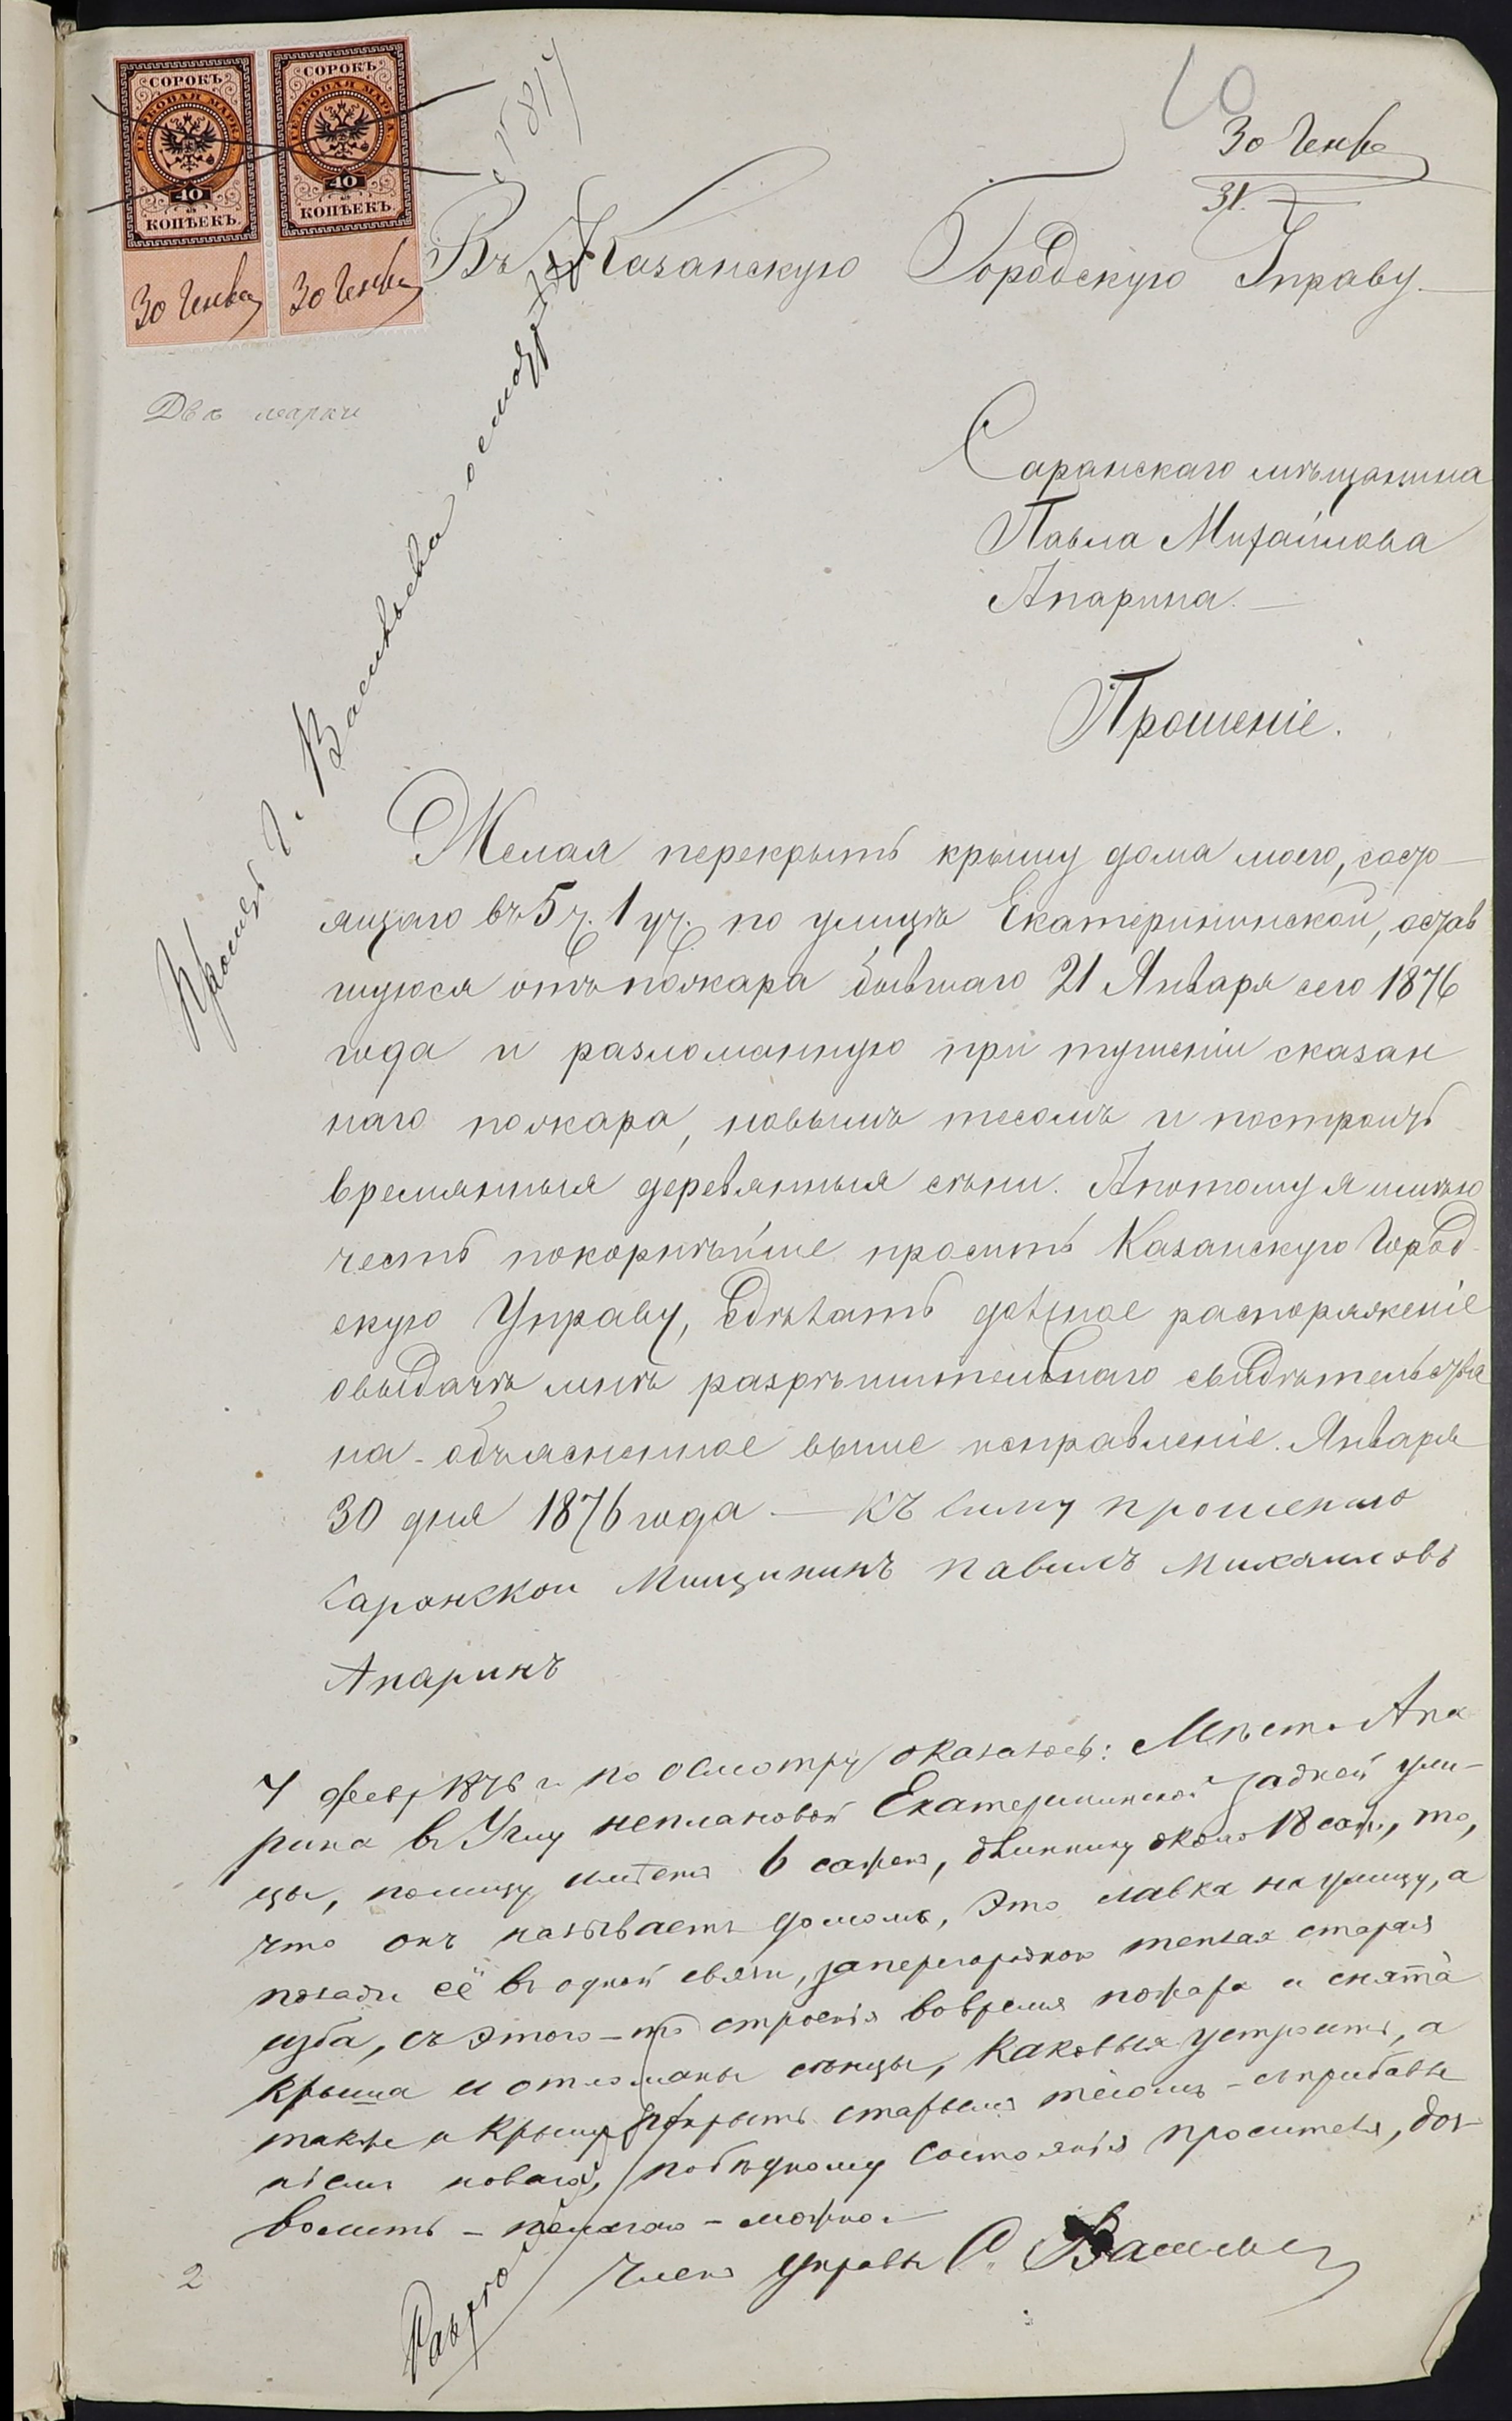 СОРОКЪ
ГЕРБОВАЯ МАРКА
40
КОПѢЕКЪ.
СОРОКЪ
ГЕРБОВАЯ МАРКА
40
КОПѢЕКЪ.
30 Генва
30 Генва
Двѣ марки
30 Генва
31.
Въ Казанскую Городскую Управу.
Саранскаго мѣщанина
Павла Михайлова
Апарина.
Прошеніе.
Просить Г. Васильева осмотрѣть
Желая перекрыть крышу дома моего, состо-
ящаго въ 5 ч. 1 уч. по улицѣ Екатерининской, остав
шуюся отъ пожара бывшаго 21 Января сего 1876
года и разломанную при тушеніи сказан
наго пожара, новымъ тесомъ и построить
времянныя деревянныя сѣни. Апотому я имѣю
честь покорнѣйше просить Казанскую Город-
скую Управу, сдѣлать должное распоряженіе
овыдачѣ мнѣ разрѣшительнаго свидѣтельства
на объясненное выше исправленіе. Января
30 дня 1876 года — Къ сему прошению
Саранскои Мищининъ павилъ михаиловъ
Апаринъ
7 февр 1876 г. по осмотру оказалось: Мѣсто Апа
рина въ Углу неплановой Екатерининской задней ули-
цы, полицу имѣетъ 6 сажен, длиннику около 18 саж., то,
что онъ называетъ домомъ, это лавка на улицу, а
позади её въ одной связи, заперегородкою теплая старая
изба, съ этого-то строенія вовремя пожара и снята
крыша и отломаны сѣнцы, каковыя устроить, а
также и крышу покрыть старымъ тесомъ - съ прибавле
ніемъ новаго, побѣдному состоянію просителя, доз-
волить - полагаю - можно.
Членъ Управы С. Васильев
2